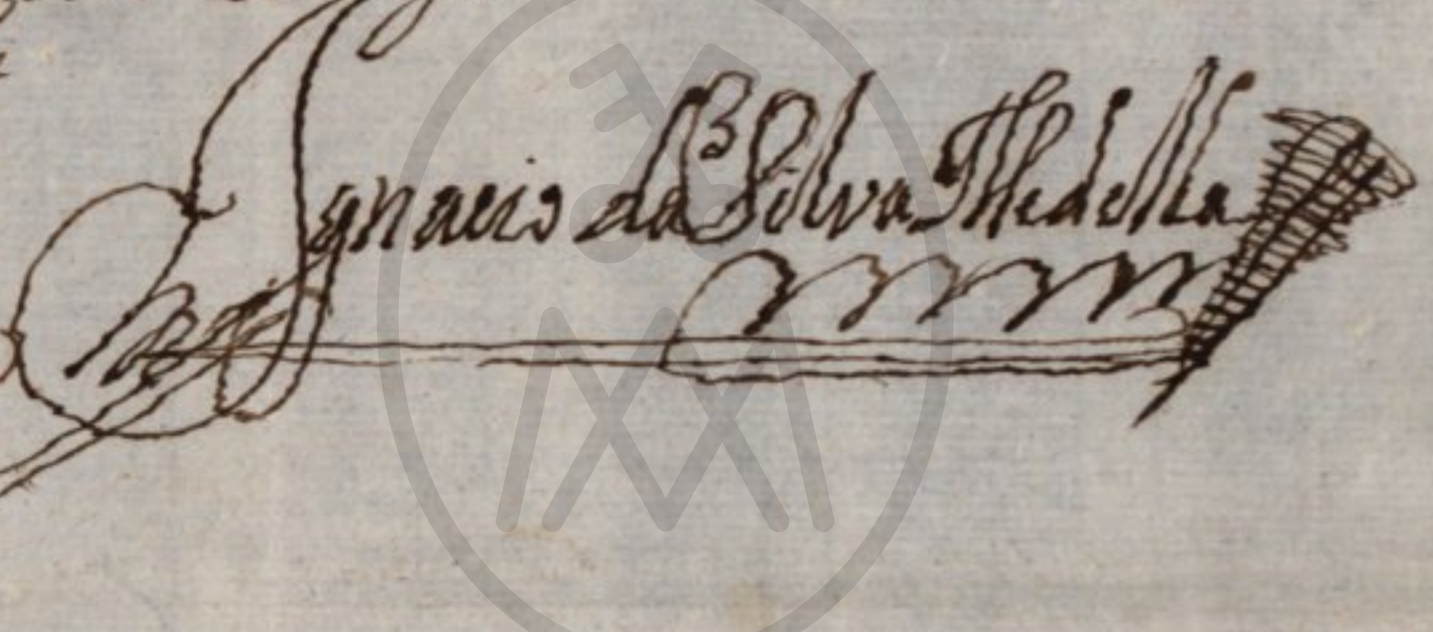 Ignacio da Silva Thedella